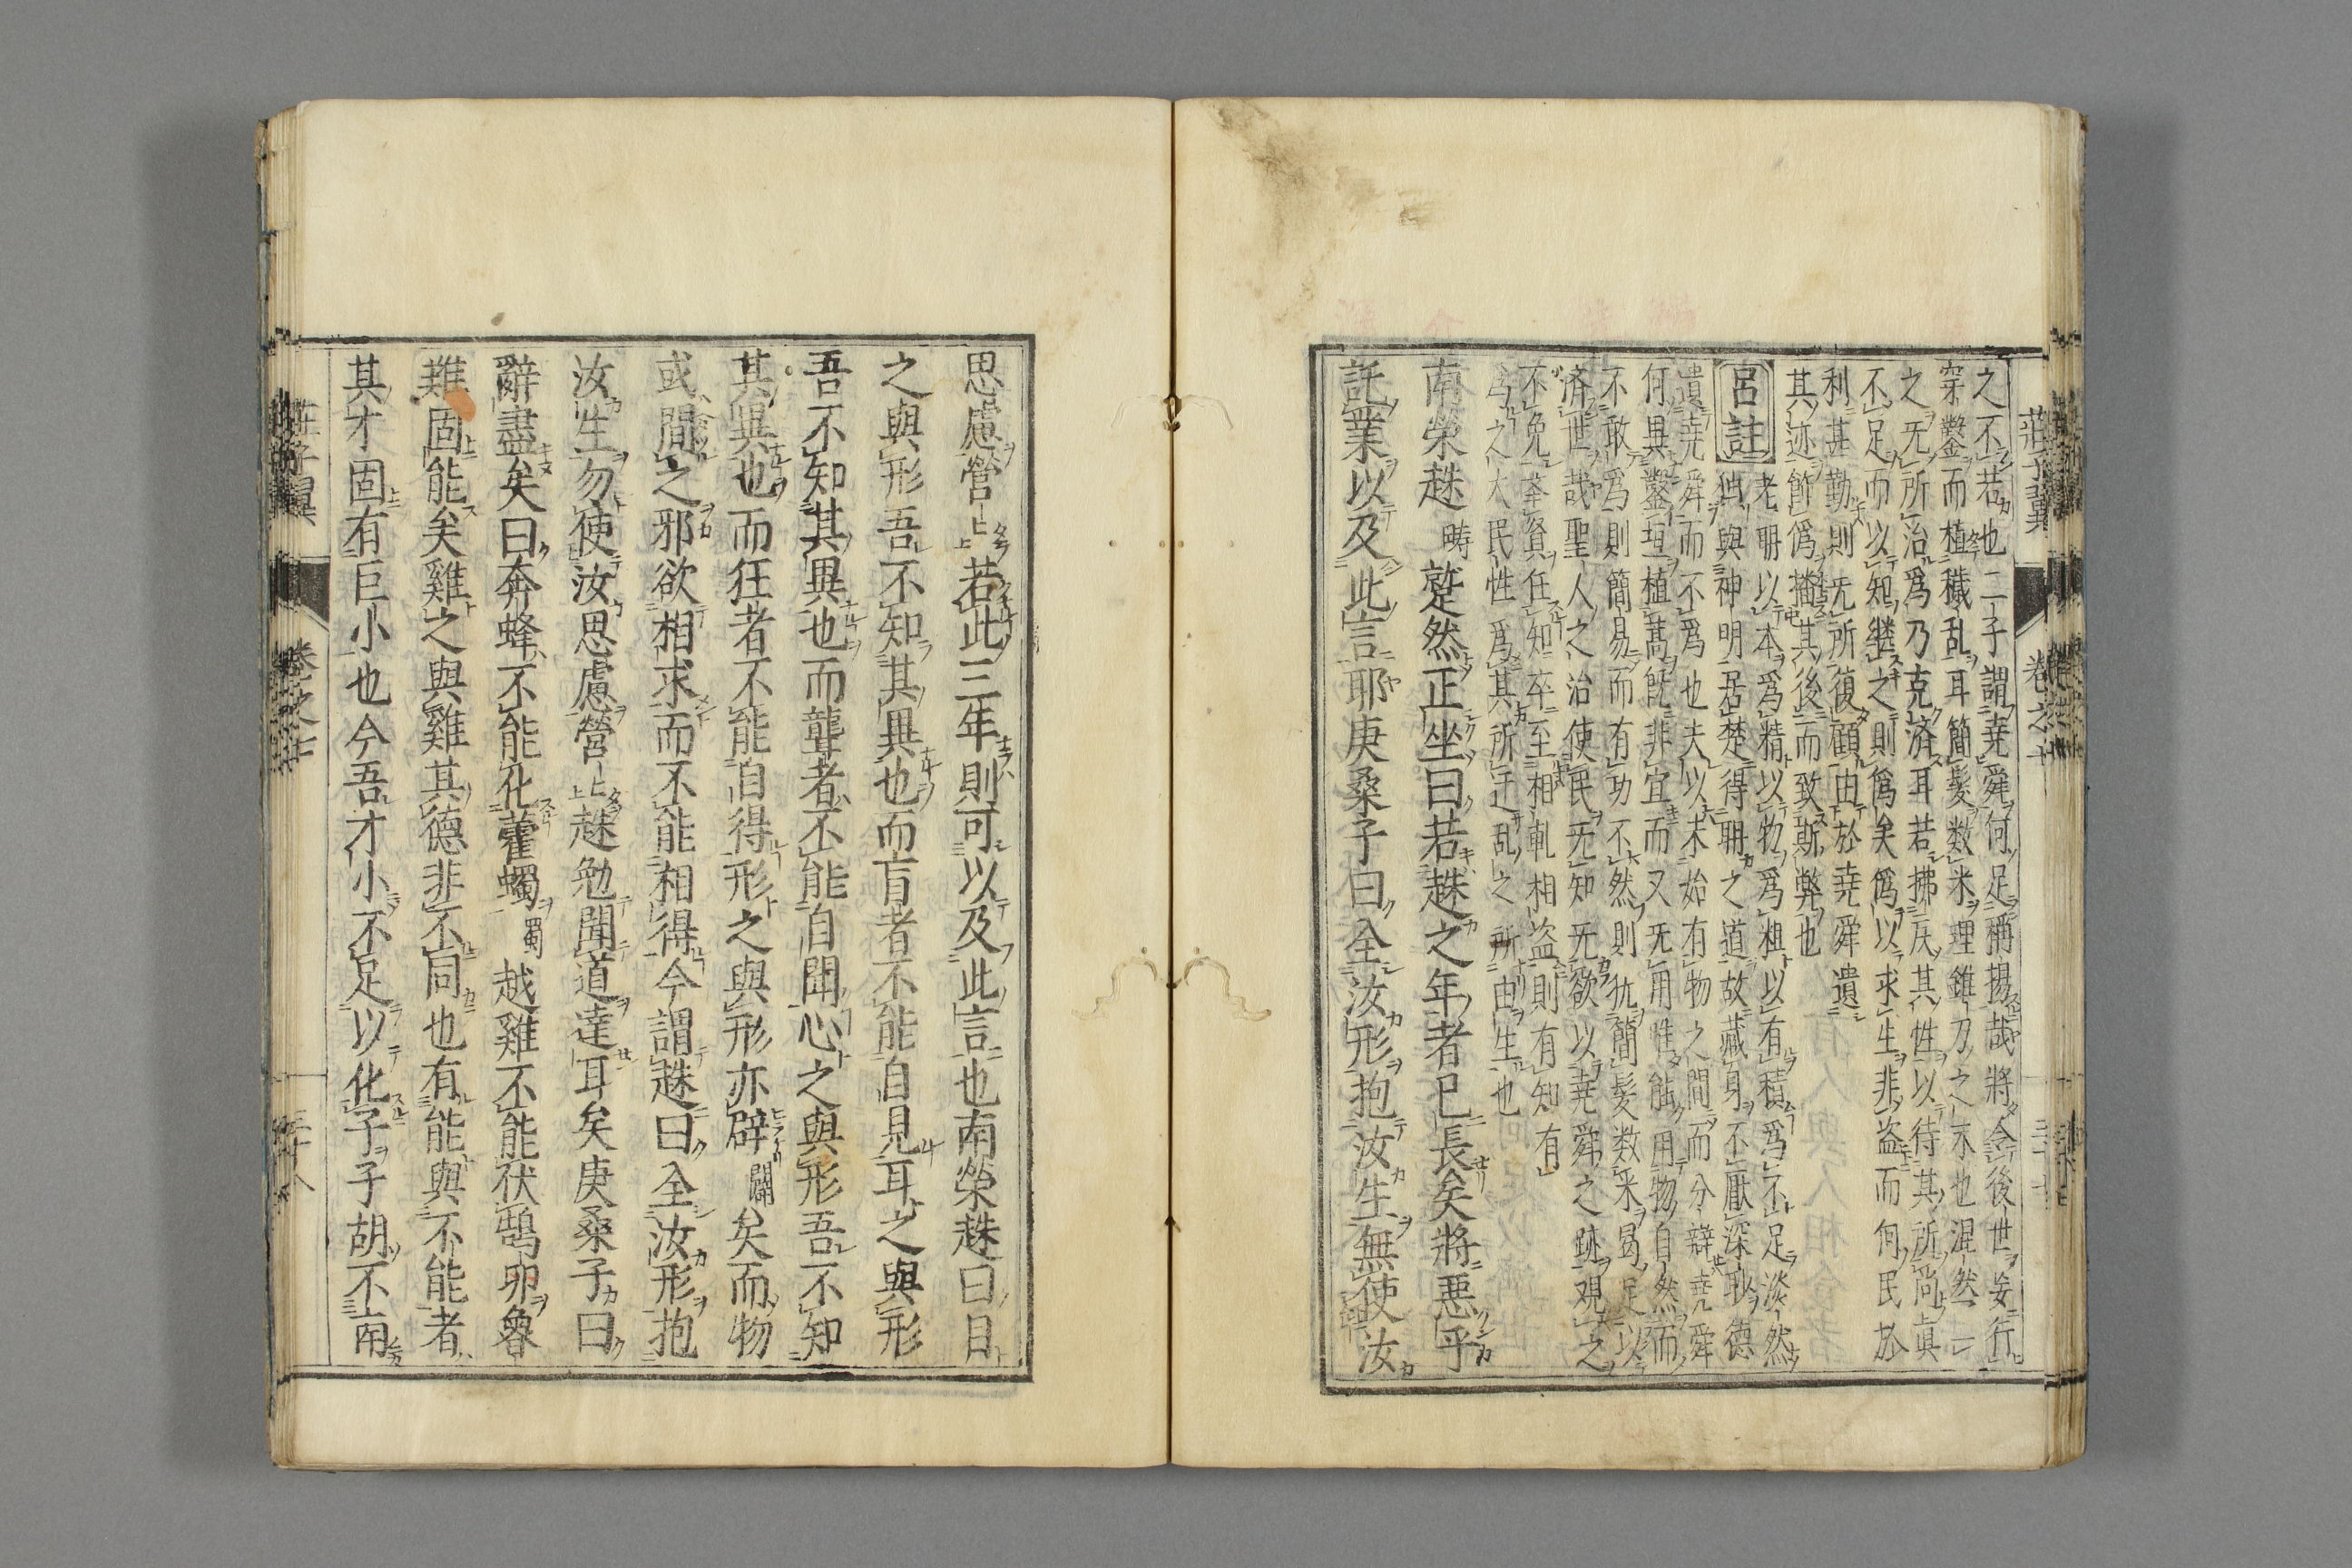 莊子翼　卷之七　三十七
之不若也二子謂尭舜何足稱揚哉將令後世妄行
穿鑿而植穢乱耳簡髮数米理錐刀之末也混然一
之无所治爲乃克済耳若拂戻其性以待其所尚真
不足而以知継之則僞矣僞以求生非盗而何民於
利甚勤則无所復顧由於尭舜遺
其迹飾僞播其後而致斯弊也
呂註　老耼以本爲精以物爲粗以有積爲不足淡然
独與神明居楚得耼之道故藏身不厭深耿德
遺尭舜而不爲也夫以未始有物之間而分辯尭舜
何異鑿垣植蒿既非宜而又无用惟能用物自然而
不敢爲則簡易而有功不然則犹簡髮数米曷足以
済世哉聖人之治使民无知无欲以尭舜之跡观之
不免举賢任知卒至相軋相盗則有知有
爲之大民性爲其所迁乱之所由生也
南榮趎疇蹵然正坐曰若趎之年者已長矣將惡乎
託業以及此言耶庚桑子曰全汝形抱汝生無使汝
思慮營上若此三年則可以及此言也南榮趎曰目
之與形吾不知其異也而盲者不能自見耳之與形
吾不知其異也而聾者不能自聞心之與形吾不知
其異也而狂者不能自得形之與形亦辟闢矣而物
或間之邪欲相求而不能相得今謂趎曰全汝形抱
汝生勿使汝思慮營上趎勉聞道達耳矣庚桑子曰
辭盡矣曰奔蜂不能化藿蠋蜀越雞不能伏鵠卵魯
雞固能矣雞之與雞其德非不同也有能與不能者
其才固有巨小也今吾才小不足以化子子胡不南
莊子翼　卷之七　三十八